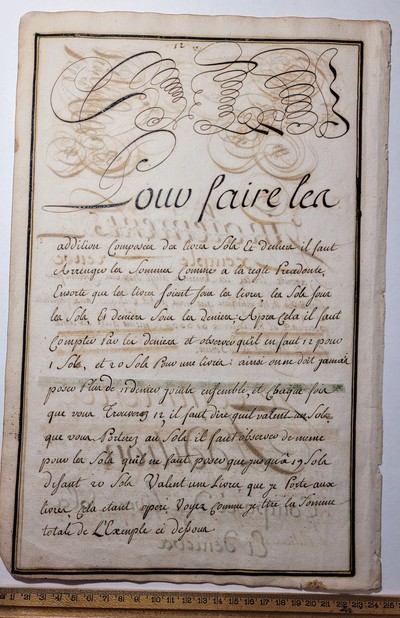 12
Pour faire les
addition Composéa des livres Sols Et deniers il faut
Arrenger les Sommes Comme a la regle Precedente,
Ensorte que les livres soient sous les livres les Sols sous
les Sols, Et deniers Sous les deniers; Apres Cela il faut
Compter Par les deniers et observer qu'il en faut 12 pour
1 Sols, et 20 Sols Pour une livre: ainsi on ne doit jamais
poser Plus de 11 denier joints ensemble, et Chaque fois
que vous Trouverez 12, il faut dire quil valent un Sols
que vous Porterez au Sols il faut observer de meme
pour les Sols qu'il ne faut poser que jusqu'a 19 Sols
disant 20 Sols Valent une Livre que je Porte aux
livres Cela etant operé Voyez Comme je tire la Somme
totale de L'Exemple ci dessous